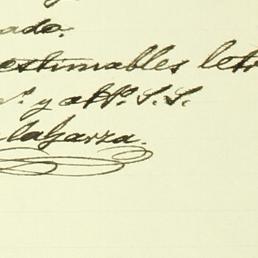 ado.
estimables letr
y att.º S. S.
laGarza.